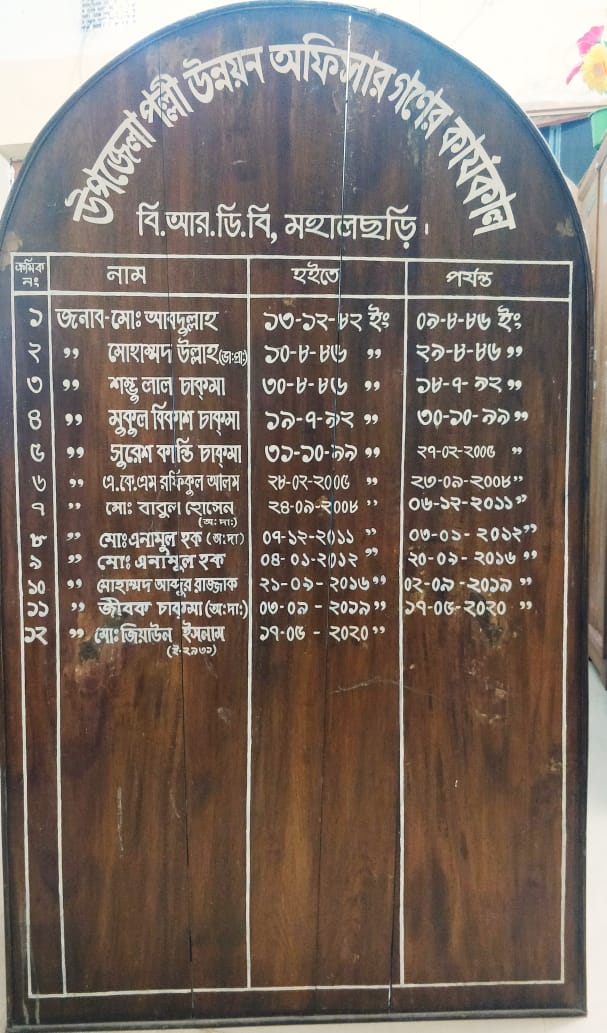 উপজেলা পল্লী উন্নয়ন অফিসার গণের কার্যকাল
বি.আর.ডি.বি, মহালছড়ি।
ক্রমিক নং নাম হইতে পর্যন্ত
১ জনাব-মোঃ আবদুল্লাহ ১৩-১২-৮২ ইং ০৯-৮-৮৬ ইং
২ ,, মোহাম্মদ উল্লাহ (ভাঃপ্রাঃ) ১০-৮-৮৬ ,, ২৯-৮-৮৬ ,,
৩ ,, শম্ভু লাল চাক্‌মা ৩০-৮-৮৬ ,, ১৮-৭-৯২ ,,
৪ ,, মুকুল বিকাশ চাক্‌মা ১৯-৭-৯২ ,, ৩০-১০-৯৯ ,,
৫ ,, সুরেশ কান্তি চাক্‌মা ৩১-১০-৯৯ ,, ২৭-০২-২০০৫ ,,
৬ ,, এ.কে.এম রফিকুল আলম ২৮-০২-২০০৫ ,, ২৩-০৯-২০০৮ ,,
৭ ,, মোঃ বাবুল হোসেন ২৪-০৯-২০০৮ ,, ০৬-১২-২০১১ ,,
(অ:দা:)
৮ ,, মোঃএনামুল হক (অ:দা) ০৭-১২-২০১১ ,, ০৩-০১-২০১২ ,,
৯ ,, মোঃ এনামুল হক ০৪-০১-২০১২ ,, ২০-০৯-২০১৬ ,,
১০ ,, মোহাম্মদ আব্দুর রাজ্জাক ২১-০৯-২০১৬ ,, ০২-০৯-২০১৯ ,,
১১ ,, জীবক চাক্‌মা (অ:দা:) ০৩-০৯-২০১৯ ,, ১৭-০৫-২০২০ ,,
১২ ,, মোঃ জিয়াউল ইসলাম ১৭-০৫-২০২০ ,,
(ই-২৯৩১)